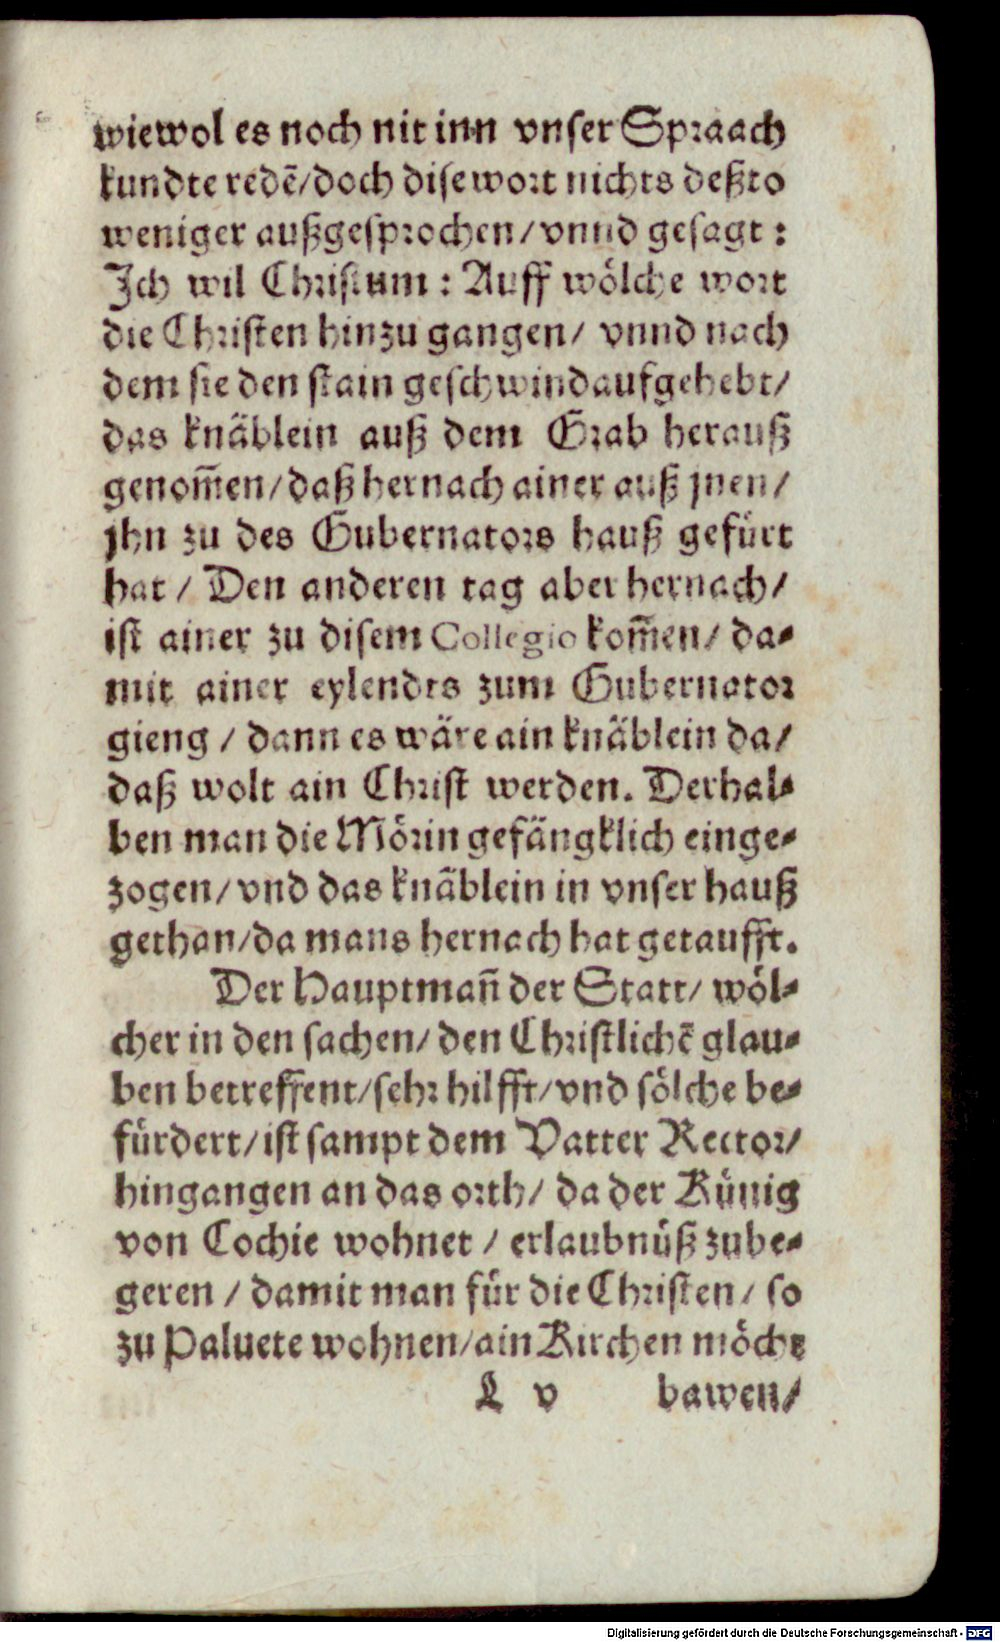 wiewol es noch nit inn vnser Spraach
kundte redẽ/doch dise wort nichts deßto
weniger außgesprochen/vnnd gesagt:
Ich wil Christum: Auff wölche wort
die Christen hinzu gangen/ vnnd nach
dem sie den stain geschwind aufgehebt/
das knäblein auß dem Grab herauß
genom̃en/daß hernach ainer auß jnen/
jhn zu des Gubernators hauß gefürt
hat/ Den anderen tag aber hernach/
ist ainer zu disem Collegio kom̃en/ da-
mit ainer eylendts zum Gubernator
gieng/ dann es wäre ain knäblein da/
daß wolt ain Christ werden. Derhal-
ben man die Mörin gefängklich einge-
zogen/vnd das knäblein in vnser hauß
gethan/da mans hernach hat getaufft.
Der Hauptmañ der Statt/ wöl-
cher in den sachen/den Christlichẽ glau-
ben betreffent/sehr hilfft/vnd sölche be-
fürdert/ist sampt dem Vatter Rector/
hingangen an das orth/ da der Künig
von Cochie wohnet/ erlaubnüß zube-
geren/ damit man für die Christen/ so
zu Paluete wohnen/ain Kirchen möcht
L v bawen/
Digitalisierung gefördert durch die Deutsche Forschungsgemeinschaft - DFG